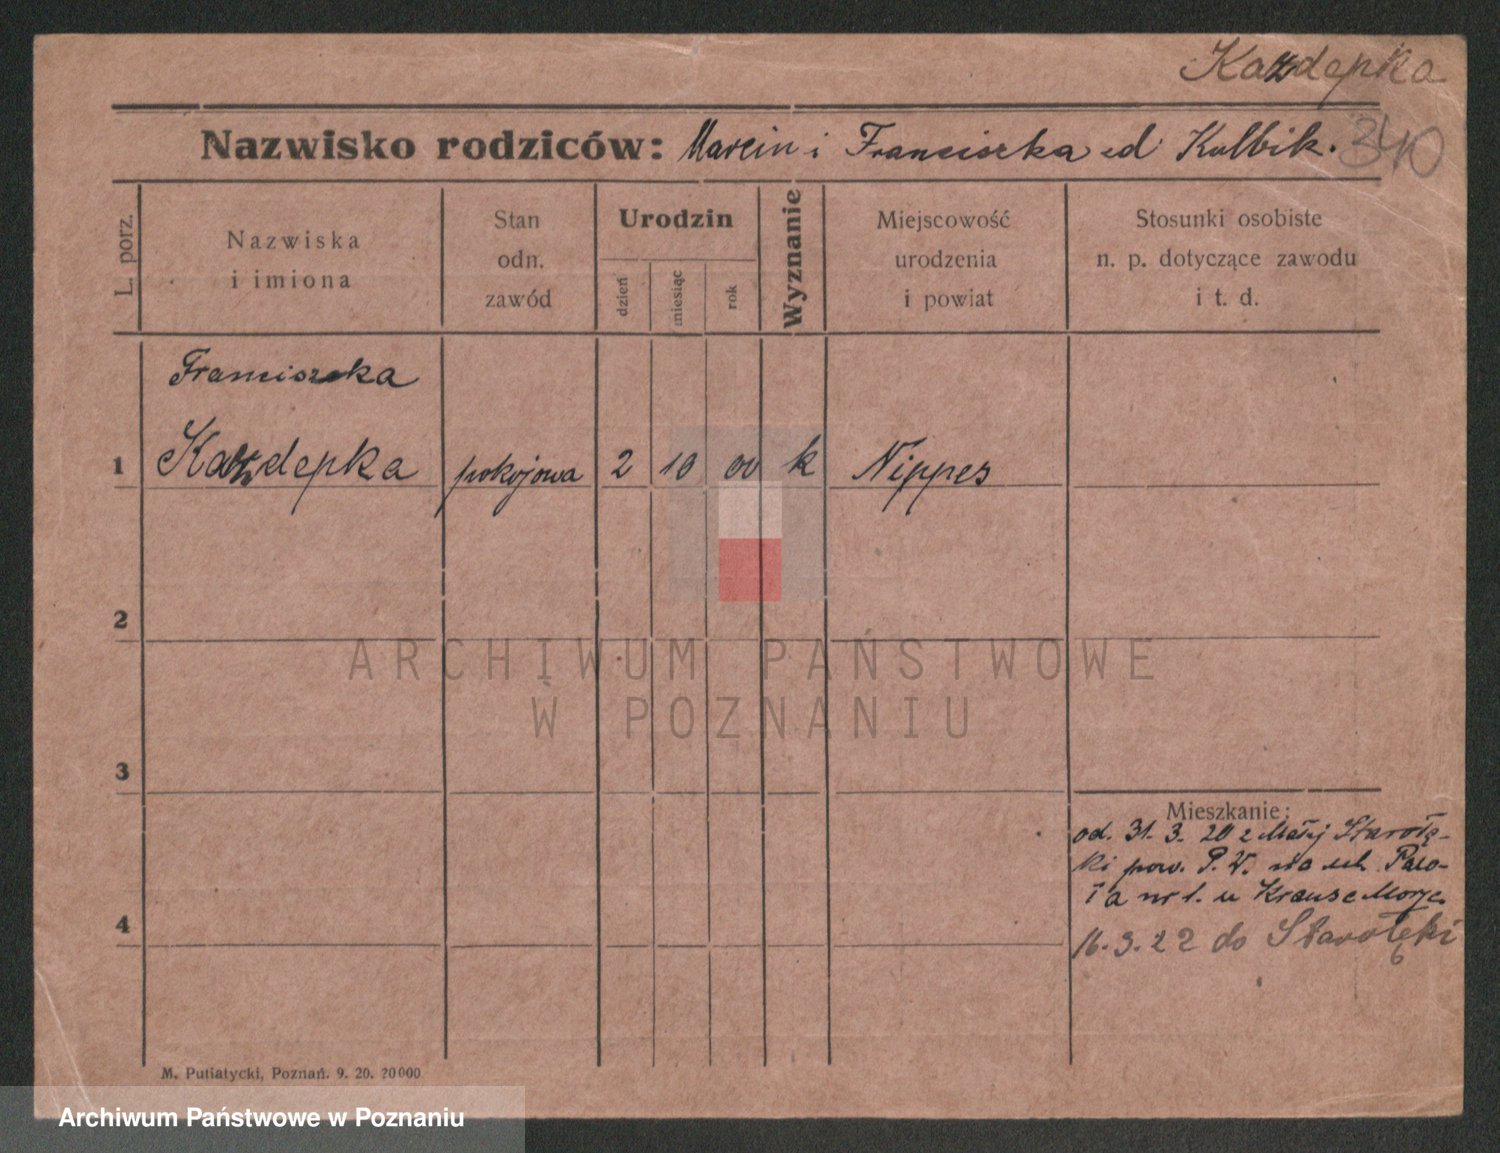 Kazdepka
Nazwisko rodziców: Marcin i Franciszka ed Kulbik.
340
L. porz.
Nazwiska
i imiona
Stan
odn.
zawód
Urodzin
dzień
miesiąc
rok
Wyznanie
Miejscowość
urodzenia
i powiat
Stosunki osobiste
n. p. dotyczące zawodu
i t. d.
Franciszka
1 Kazdepka pokojowa 2 10 00 k Nippes
2
ARCHIWUM PAŃSTWOWE
W POZNANIU
3
Mieszkanie:
od. 31. 3. 20 z Małej Starołę-
ki pow. P. W. na
nr 1. u Krause
4
16. 3. 22 do Starołęki
M. Putiatycki, Poznań. 9. 20. 20000
Archiwum Państwowe w Poznaniu